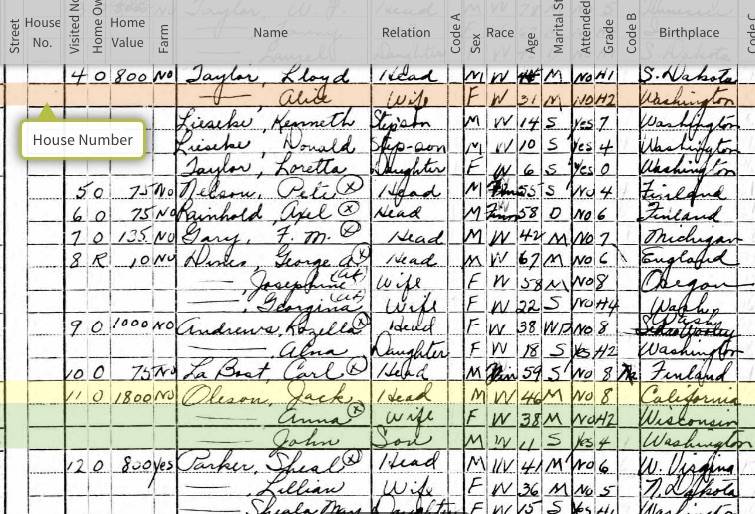 Street House No. Visited No Home Ow Home Value Farm Name Relation Code A Sex Race Age Marital St Attended Grade Code B Birthplace
4 0 800 No Taylor, Lloyd Head M W 44 M No H1 S. Dakota
—, Alice Wife F W 31 M No H2 Washington
House Number
Lieseke, Kenneth Stepson M W 14 S Yes 7 Washington
Lieseke, Donald Step-son M W 10 S Yes 4 Washington
Taylor, Loretta Daughter F W 6 S Yes 0 Washington
5 0 75 No Nelson, Pete Ⓧ Head M 55 S No 4 Finland
6 0 75 No Rainhold, Axel Ⓧ Head M 58 D No 6 Finland
7 0 135 No Gary, F. M. Ⓧ Head M W 42 M No 7 Michigan
8 R 10 No Hines George A Ⓧ Head M W 67 M No 6 England
—, Josephine Wife F W 58 M No 8 Oregon
—, Georgina Wife F W 22 S No H4 Wash.
9 0 1000 No Andrews, Rozella Ⓧ Head F W 38 WD No 8
—, Alna Daughter F W 18 S Yes H2 Washington
10 0 75 No La Bost, Carl Ⓧ Head M 59 S No 8 Finland
11 0 1800 No Oleson, Jack Head M W 46 M No 8 California
—, Anna Ⓧ Wife F W 38 M No H2 Wisconsin
—, John Son M W 11 S Yes 4 Washington
12 0 800 Yes Parker, Sheal Ⓧ Head M W 41 M No 6 W. Virginia
—, Lillian Wife F W 36 M No 5 N. Dakota
—, Sheala May Daughter F W 15 S Yes H1 Washington